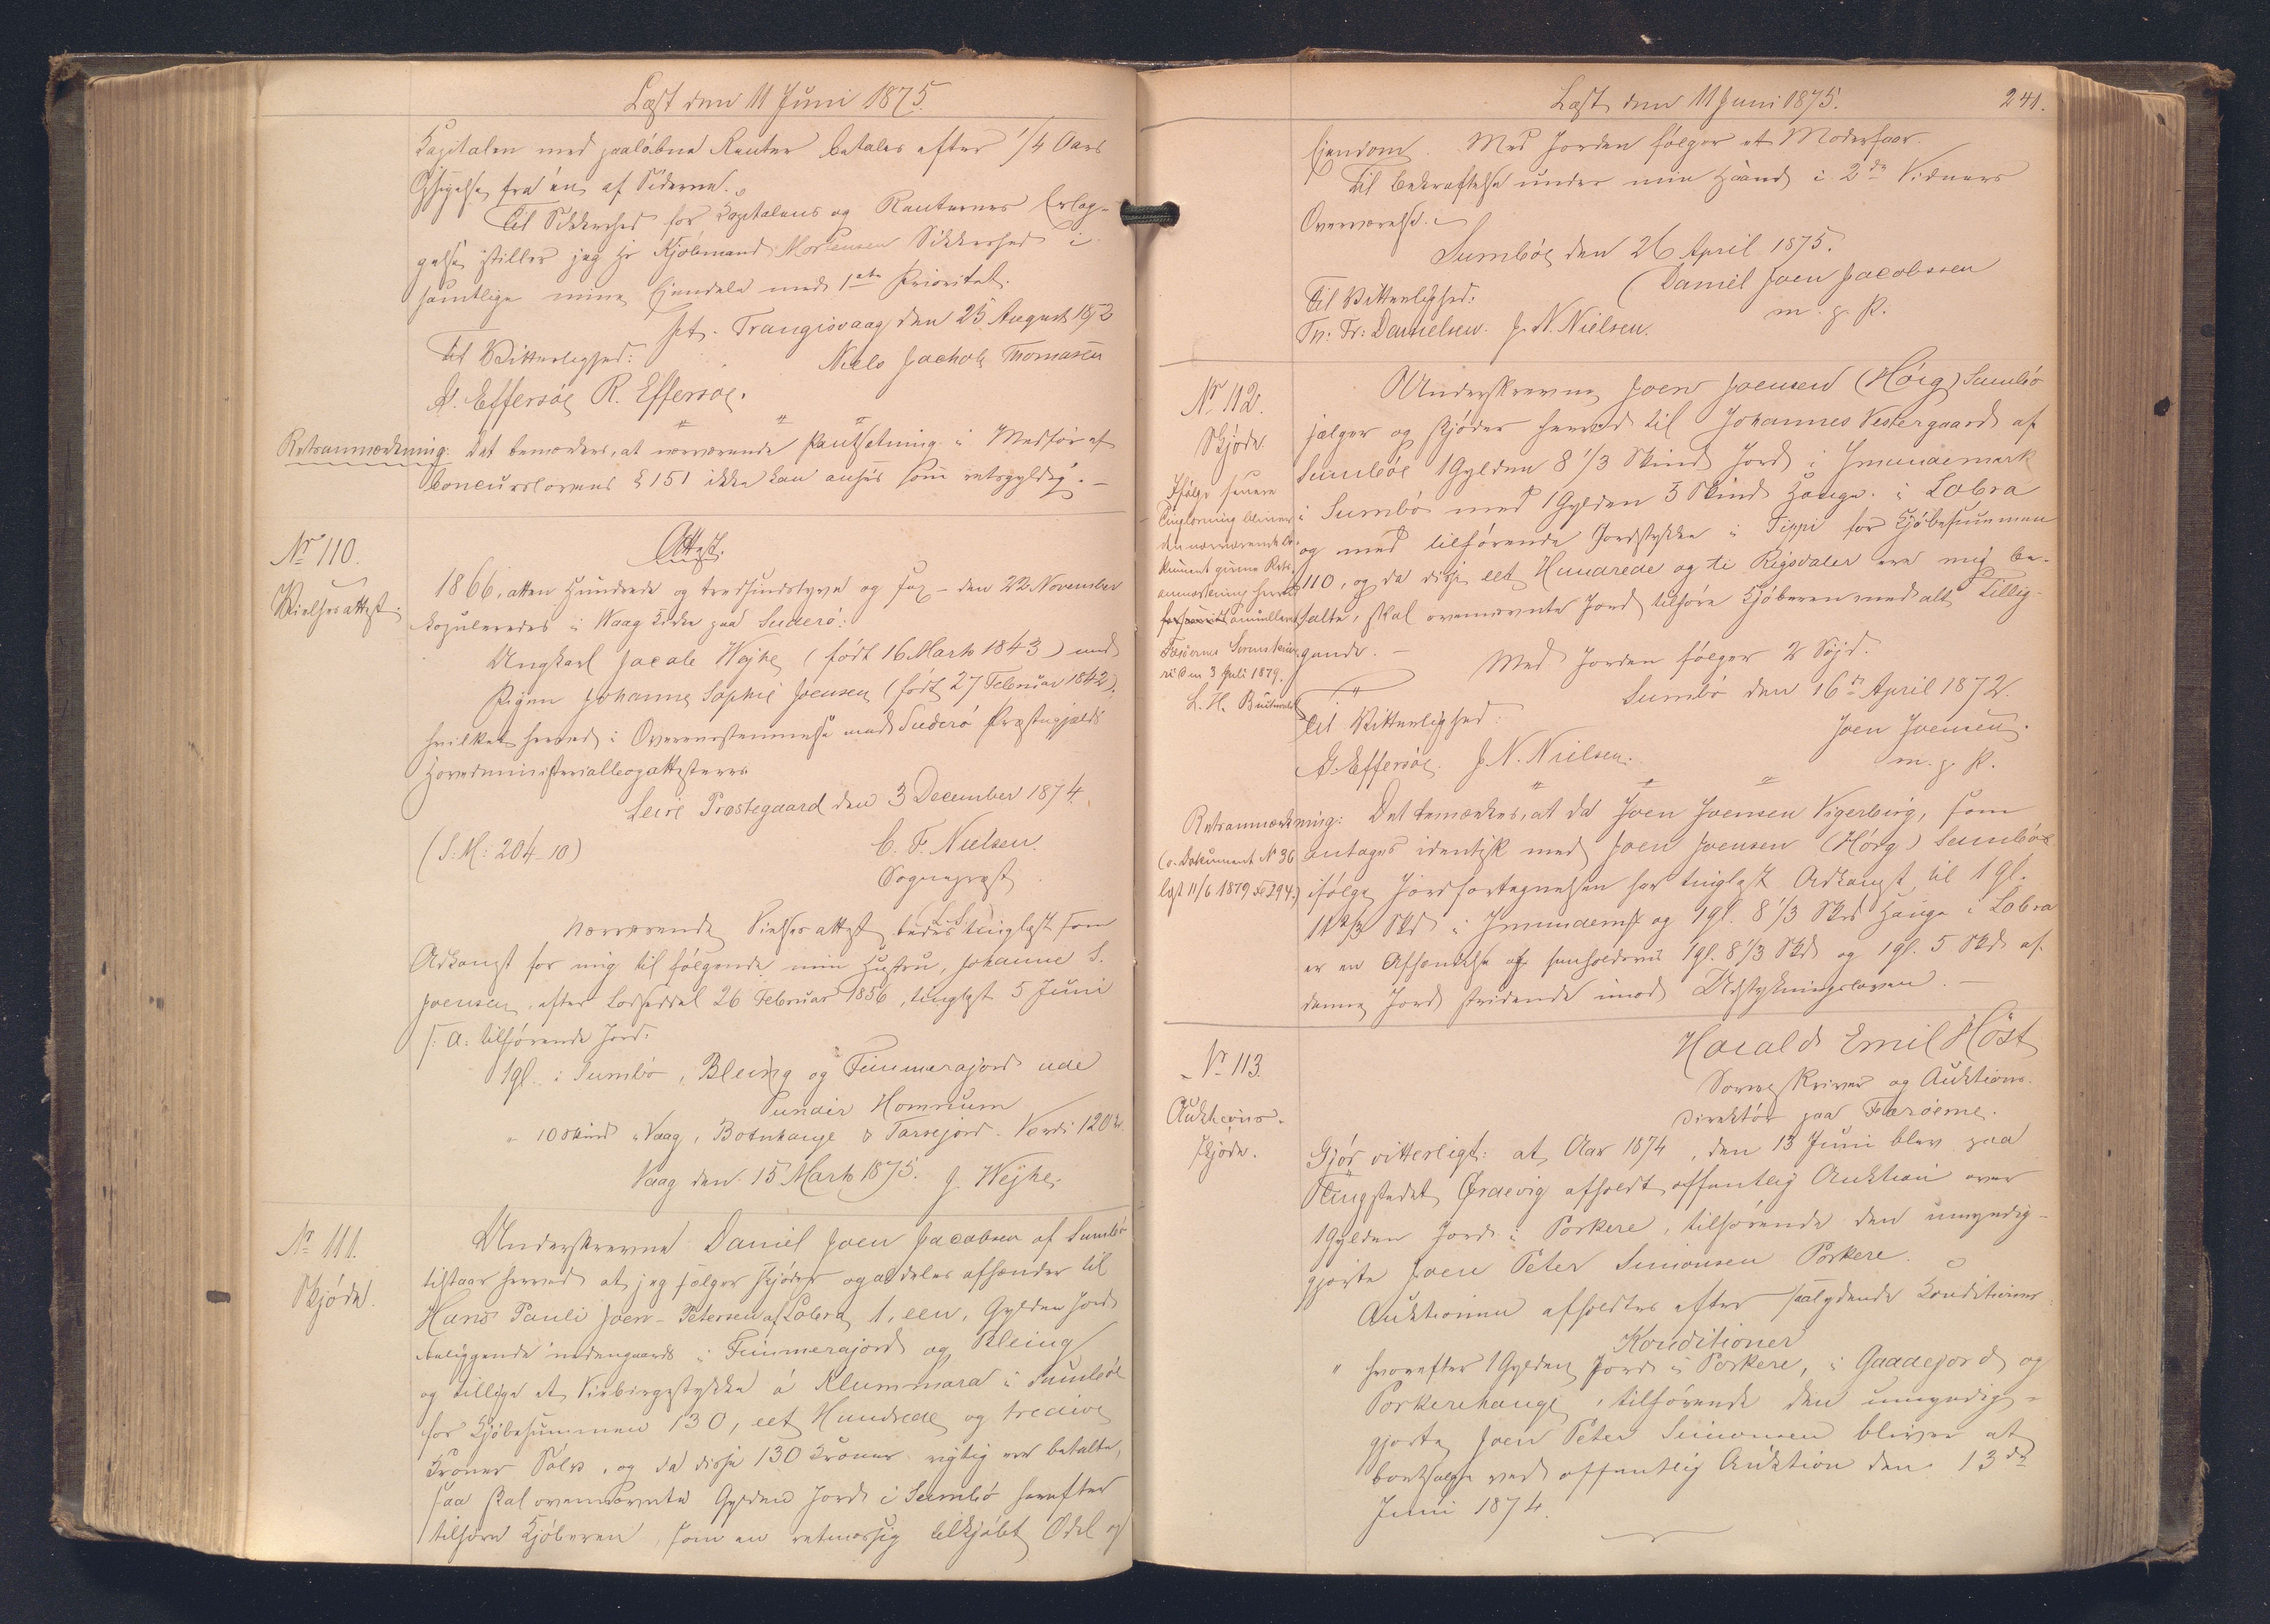 Læst den 11 Juni 1875.
Kapitalen med paaløbne Renter betales efter 1/4 Aars
Opsigelse fra én af Siderne.
Til Sikkerhed for Kapitalens og Renternes Erlæg-
gelse stiller jeg Hr Kjøbmand Mortensen Sikkerhed i
samtlige mine Ejendele med 1ste Prioritet.
pt. Trangisvaag den 25 August 1872
Til Vitterlighed: Niels Jachob Thomasen
G. Effersøe R. Effersøe.
Retsanmærkning: Det bemærkes, at nærværende Pantsætning i Medfør af
Concurslovens § 151 ikke kan anses som retsgyldig. –
No 110.
Vielsesattest.
Attest.
1866, atten Hundrede og tredsindstyve og sex – den 22 November
kopuleredes i Waag Kirke paa Suderø:
Ungkarl Jacob Wejhe (født 16 Marts 1843) med
Pigen Johanne Sophie Joensen (født 27 Februar 1842),
hvilket herved i Overensstemmelse med Suderø Præstegjælds
Hovedministerialbog attesteres
Leire Præstegaard den 3 December 1874.
(S: M: 204-10) C. F. Nielsen.
Sognepræst
(L. S.)
Nærværende Vielsesattest bedes tinglæst som
Adkomst for mig til følgende min Hustru, Johanne S.
Joensen, efter Lodseddel 26 Februar 1856, tinglyst 5 Juni
s: A: tilhørende Jord:
1 gl. i Sumbø, Bleing og Fimmerajord ude
Homrum
" 10 Skind i Vaag, Botnhauge & Tarvejord. Værdi 120 kr
Vaag den 15 Marts 1875. J. Wejhe.
No 111.
Skjøde.
Underskrevne Daniel Joen Jacobsen af Sumbø
tilstaar herved at jeg sælger skjøder og aldeles afhænder til
Hans Pauli Joen-Petersen af Lobra 1, een, Gylden Jord
beliggende indengaards i Fimmerajord og Bleing
og tillige et stykke á Klummara i Sumbøe
for Kjøbesummen 130, eet Hundrede og tredive
Kroner Sølv, og da disse 130 Kroner rigtig ere betalte,
saa skal ovennævnte Gylden Jord i Sumbø herefter
tilhøre Kjøberen, som en retmæssig tilkjøbt Odel og
Læst den 11 Juni 1875. 241.
Ejendom. Med Jorden følger et Moderfaar.
Til Bekræftelse under min Haand i 2de Vidners
Overværelse.
Sumbøe den 26 April 1875.
Til Vitterlighed: Daniel Joen Jacobssen
Tn: Fr: Danielsen. J. N. Nielsen. m. f. P.
No 112.
Skjøde.
Underskrevne Joen Joensen (Hørg) Sumbø
sælger og skjøder herved til Johannes Vestergaard af
Sumbøe 1 Gylden 8 1/3 Skind Jord i Jmundemark
i Sumbø med 1 Gylden 5 Skind Hauge i Lobra
og med tilhørende Jordstykke i Tippi for Kjøbesummen
110, og da disse eet Hundrede og ti Rigsdaler ere mig be-
talte, skal ovennævnte Jord tilhøre Kjøberen med alt Tillig-
gende. –
Ifølge senere
Tinglæsning bliver
den nærværende Do-
kument givne Rets-
anmærkning herved
annulleret
Færøerne Sorenskrive-
ri den 3 Juli 1879.
L. H.
Med Jorden følger 2
Sumbø den 16de April 1872.
Til Vitterlighed: Joen Joensen.
G. Effersøe. J. N. Nielsen. m. f. P.
Retsanmærkning: Det bemærkes, at da Joen Joensen Vigerberg, som
(v. Dokument No 36
læst 11/6 1879 Fo 294.)
antages identisk med Joen Joensen (Hørg) Sumbøe
ifølge Jordfortegnelsen har tinglæst Adkomst til 1 gl.
11 2/3 Skd i Jmundemk og 1 gl. 8 1/3 Skd Hauge i Lobra
er en Afhændelse af henholdsvis 1 gl. 8 1/3 Skd og 1 gl. 5 Skd af
denne Jord stridende imod Udstykningsloven. –
No 113.
Auktions-
skjøde.
Harald Emil Höst
Sorenskriver og Auktions-
direktør paa Færöerne.
Gjør vitterligt: at Aar 1874, den 13 Juni blev paa
Tingstedet Øravig afholdt offentlig Auktion over
1 Gylden Jord i Porkere, tilhørende den umyndig-
gjorte Joen Peter Simonsen Porkere.
Auktionen afholdtes efter saalydende Konditioner:
Konditioner
" hvorefter 1 Gylden Jord i Porkere, i Gaadejord og
Porkerehauge, tilhørende den umyndig-
gjorte Joen Peter Simonsen bliver at
bortsælge ved offentlig Auktion den 13de
Juni 1874.